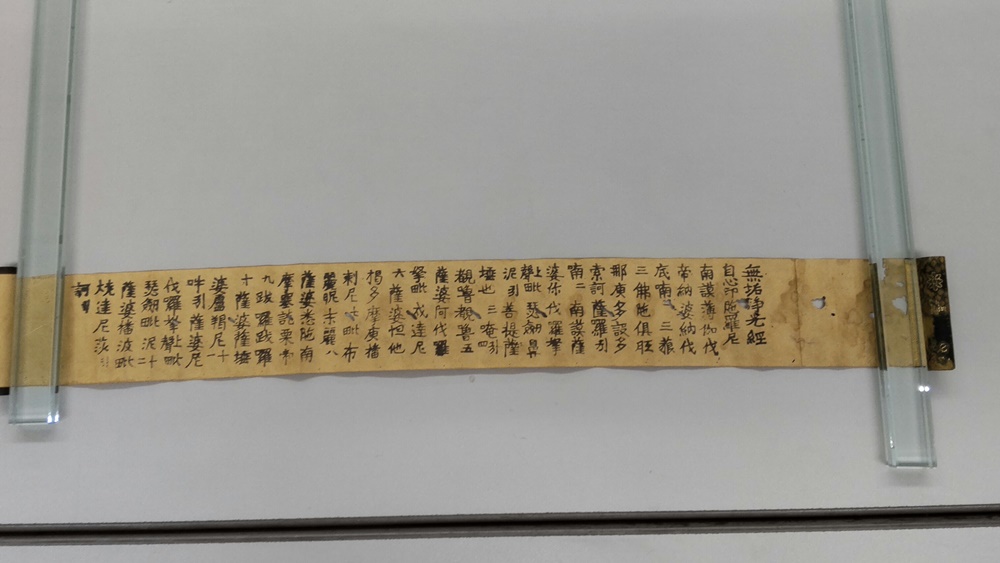 無垢淨光經
自心印陁羅尼
南謨薄伽伐
帝納婆納伐
底喃一 三藐
三佛陁俱胝
那庾多設多
索訶薩羅引
喃二 南謨薩
婆你伐羅拏
上聲毗瑟劔鼻
泥引菩提薩
埵也三唵四
覩嚕覩嚕五
薩婆阿伐羅
拏毗戍達尼
六薩婆怛他
揭多摩庾播
剌尼七毗布
麗昵末麗八
薩婆悉陁南
摩塞訖栗帝
九跋羅跋羅
十薩婆薩埵
婆盧羯尼十一
吽引薩婆尼
伐羅拏上聲毗
瑟劔毗泥十二
薩婆播波毗
燒達尼莎引
訶